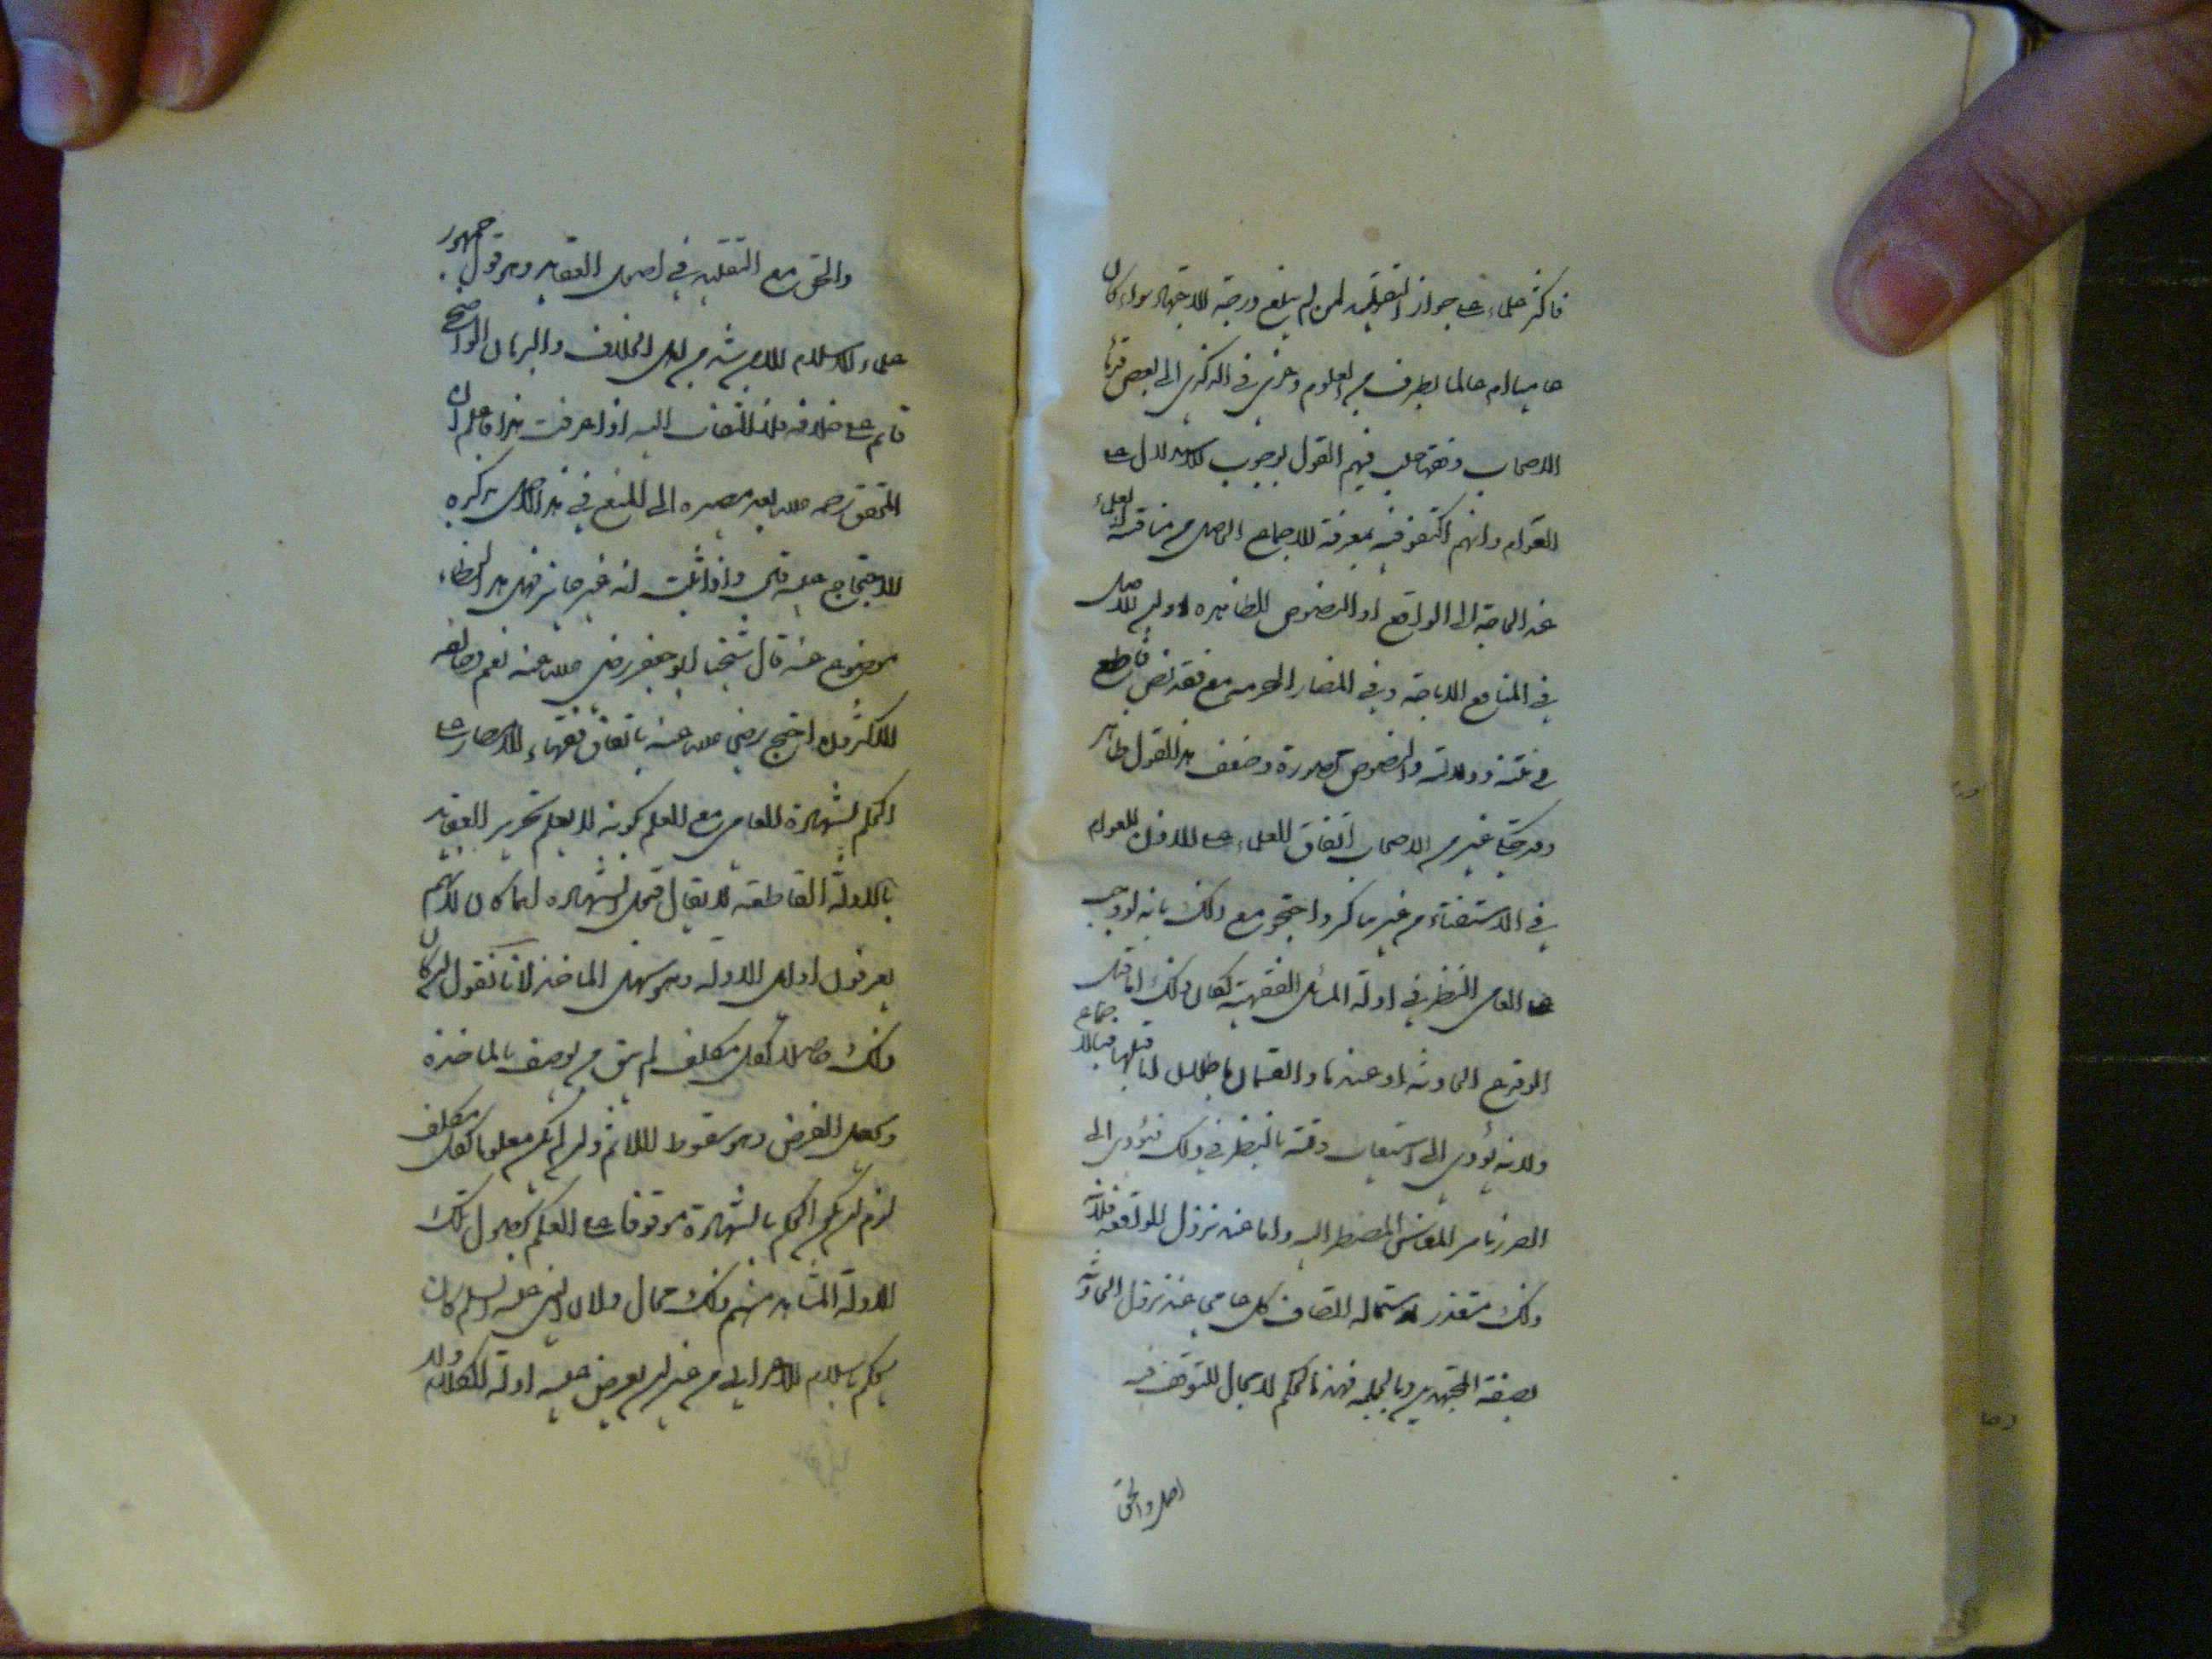 فاكثر علماء على جواز التقليد لمن لم يبلغ درجة الاجتهاد سواء كان
عاميا ام عالما بطرف من العلوم وعزى في الذكرى الى بعض قدماء
الاصحاب وفقهاء حلب منهم القول بوجوب الاستدلال على
العوام وانهم اكتفوا فيه بمعرفة الاجماع الحاصل من مناقشة العلماء
عند الحاجة الى الوقايع او النصوص الظاهرة او ان الاصل
في المنافع الاباحة وفي المضار الحرمة مع فقد نص قاطع
في متنه ودلالته والنصوص محصورة وضعف هذا القول ظاهر
وقد حكى غير من الاصحاب اتفاق العلماء على الاذن للعوام
في الاستفتاء من غير تناكر واحتج مع ذلك بانه لو وجب
على العامي النظر في ادلة المسائل الفقهية لكان ذلك اما قبل
الوقوع الحادثة او عندها والقسمان باطلان اما قبلها فبالاجماع
ولانه يؤدي الى استيعاب وقته بالنظر في ذلك فيؤدي الى
الضرر بامر المعاش المضطر اليه واما عند نزول الواقعة فلان
ذلك متعذر لاستحالة اتصاف كل عامي عند نزول الحادثة
بصفة المجتهدين وبالجملة فهذا الحكم لا مجال للتوقف فيه
اصل والحق
والحق منع التقليد في اصول العقايد وهو قول جمهور
علماء الاسلام الا من شذ من اهل الخلاف والبرهان الواضح
قائم على خلافه فلا التفات اليه اذا عرفت هذا فاعلم ان
المحقق رحمه الله بعد مصيره الى المنع في هذا الاصل وذكره
الاحتجاج عليه قال واذا ثبت انه غير جائز فهل هذا الخطاء
موضوع عنه قال شيخنا ابو جعفر رضي الله عنه نعم وخالفه
الاكثرون احتج رضي الله عنه باتفاق فقهاء الامصار على
الحكم بشهادة العامي مع العلم بكونه لا يعلم تحرير العقايد
بالادلة القاطعة لا يقال قبول الشهادة انما كان لانهم
يعرفون اوايل الادلة وهو سهل الماخذ لانا نقول ان كان
ذلك حاصلا لكل مكلف لم يبق من يوصف بالمؤاخذة
وحصل الغرض وهو سقوط الاثم وان لم يكن معلوما لكل مكلف
لزم ان يكون الحكم بالشهادة موقوفا على العلم بحصول تلك
الادلة للشاهد منهم وذلك محال ولان النبي عليه السلام كان
يحكم باسلام الاعرابي من غير ان يعرض عليه ادلة الكلام ولا